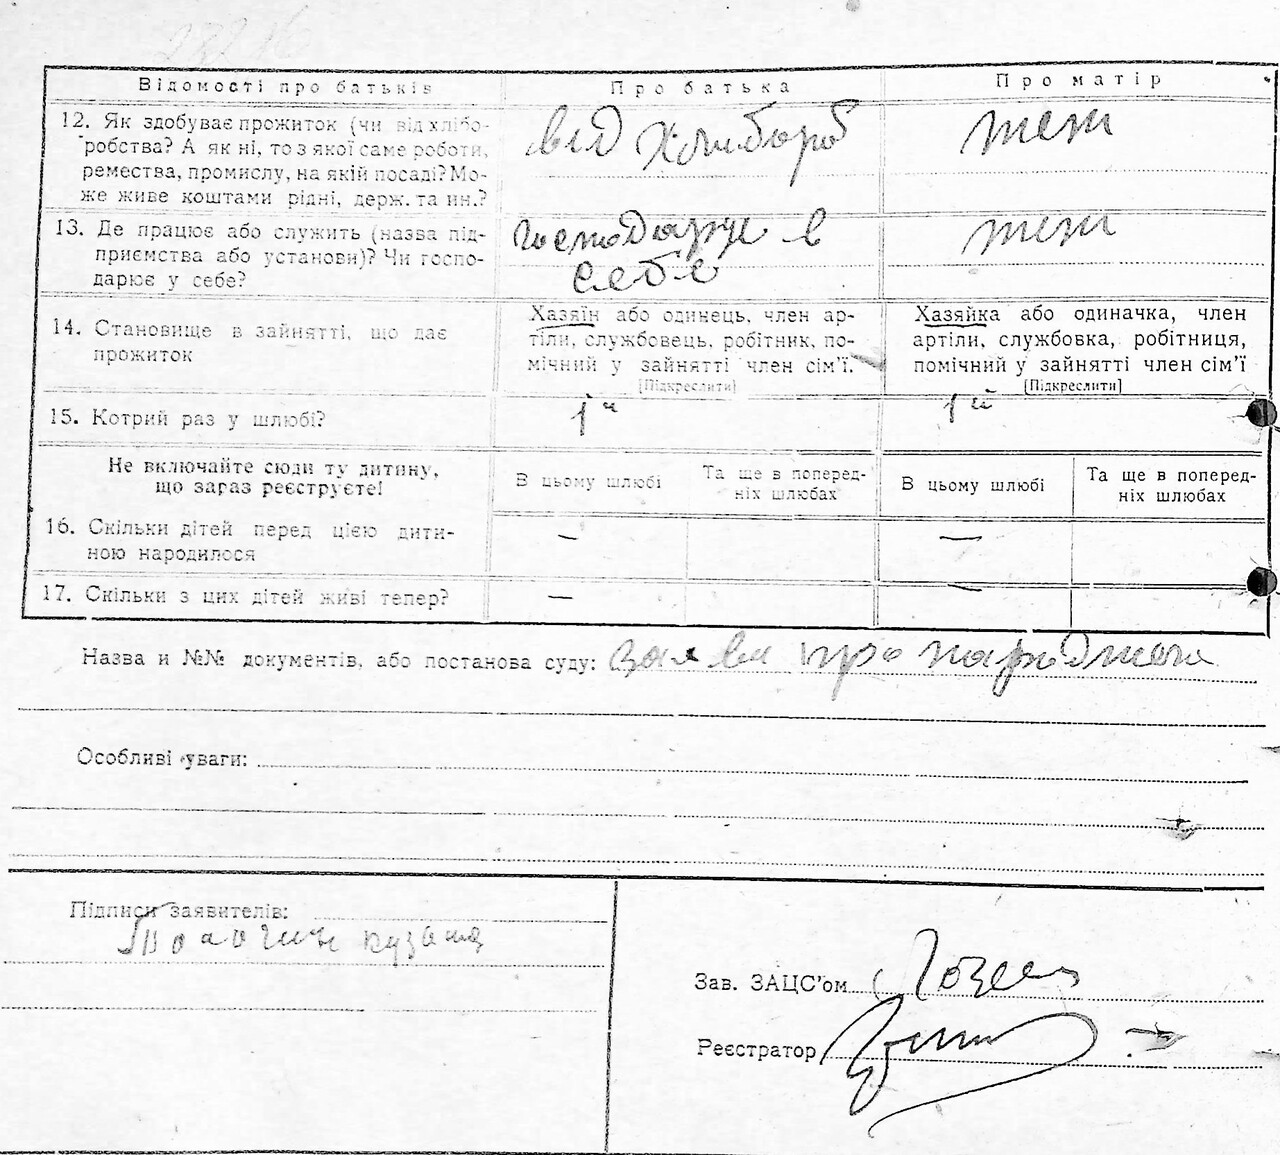 Відомості про батьків Про батька Про матір
12. Як здобуває прожиток (чи від хлібо-
робства? А як ні, то з якої саме роботи,
ремества, промислу, на якій посаді? Мо-
же живе коштами рідні, держ. та ин.?
від хлибороб
теж
13. Де працює або служить (назва під-
приємства або установи)? Чи госпо-
дарює у себе?
господарує в
себе
теж
14. Становище в зайнятті, що дає
прожиток
Хазяїн або одинець, член ар-
тіли, службовець, робітник, по-
мічний у зайнятті член сім'ї.
[Підкреслити]
Хазяйка або одиначка, член
артіли, службовка, робітниця,
помічний у зайнятті член сім'ї
[Підкреслити]
15. Котрий раз у шлюбі? 1й 1й
Не включайте сюди ту дитину,
що зараз реєструєте!
В цьому шлюбі
Та ще в поперед-
ніх шлюбах
В цьому шлюбі
Та ще в поперед-
ніх шлюбах
16. Скільки дітей перед цією дити-
ною народилося
— —
17. Скільки з цих дітей живі тепер? — —
Назва и №№ документів, або постанова суду: заява про народження
Особливі уваги:
Підписи заявителів:
Зав. ЗАЦС'ом
Реєстратор